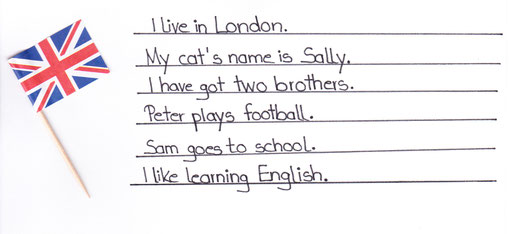 I live in London.
My cat's name is Sally.
I have got two brothers.
Peter plays football.
Sam goes to school.
I like learning English.